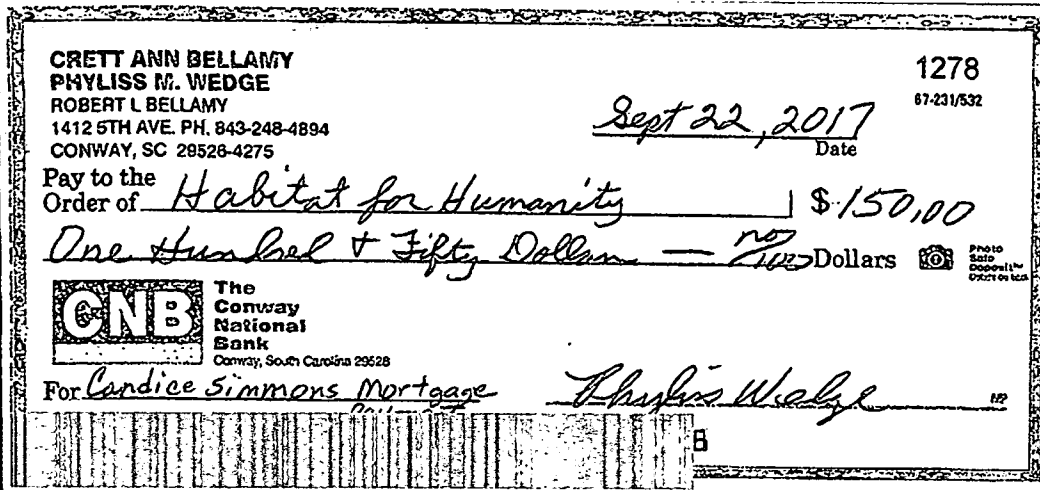 CRETT ANN BELLAMY
PHYLISS M. WEDGE
ROBERT L BELLAMY
1412 5TH AVE. PH. 843-248-4894
CONWAY, SC 29526-4275
1278
67-231/532
Sept 22, 2017
Date
Pay to the
Order of Habitat for Humanity $ 150,00
One Hundred + Fifty Dollars — no/100 Dollars
Photo
Safe
Deposit™
Details on back
CNB
The
Conway
National
Bank
Conway, South Carolina 29528
For Candice Simmons Mortgage Phyliss Wedge
MP